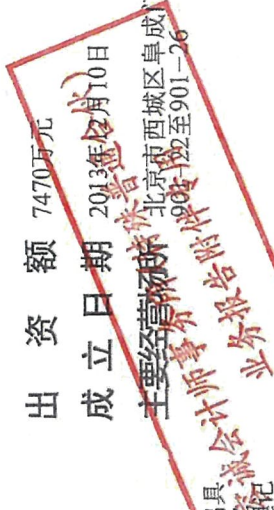 出资额 7470万元
成立日期 2013年12月10日
主要经营场所 北京市西城区阜成
901-22至901-26
诚会计师事务所(特殊普通合伙)
业务报告附件专用
具
记